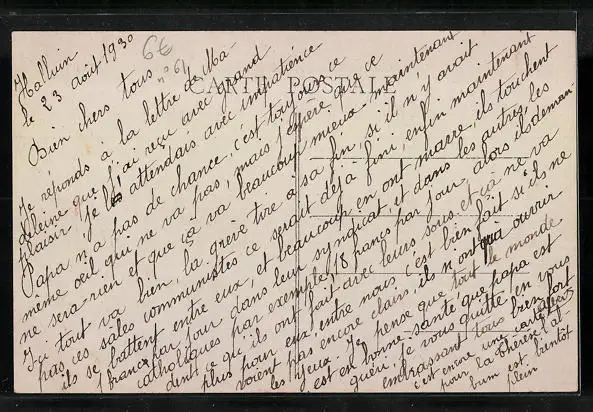 Halluin
le 23 août 1930
6€
n° 64
CARTE POSTALE
Bien chers tous
Je réponds à la lettre de Ma-
deleine que j'ai reçu avec grand
plaisir, je les attendais avec impatience
Papa n'a pas de chance, c'est toujours ce
même œil qui ne va pas, mais j'espère que ce
ne sera rien et que ça va beaucoup mieux maintenant
Ici tout va bien, la grève tire à sa fin, si il n'y avait
pas ces sales communistes ce serait déjà fini, enfin maintenant
ils se battent entre eux, et beaucoup en ont marre, ils touchent
francs par jour dans leur syndicat, et dans les autres, les
catholiques par exemple, 18 francs par jour alors ils deman-
dent ce qu'ils ont fait avec leurs sous, et ça ne va
plus pour eux, entre nous, c'est bien fait s'ils ne
voient pas encore clair, ils n'ont qu'à ouvrir
les yeux. Je pense que tout le monde
est en bonne santé, que papa est
guéri. Je vous quitte en vous
embrassant tous bien fort
c'est encore une
pour la Thérèse, l'al-
bum est bientôt
plein